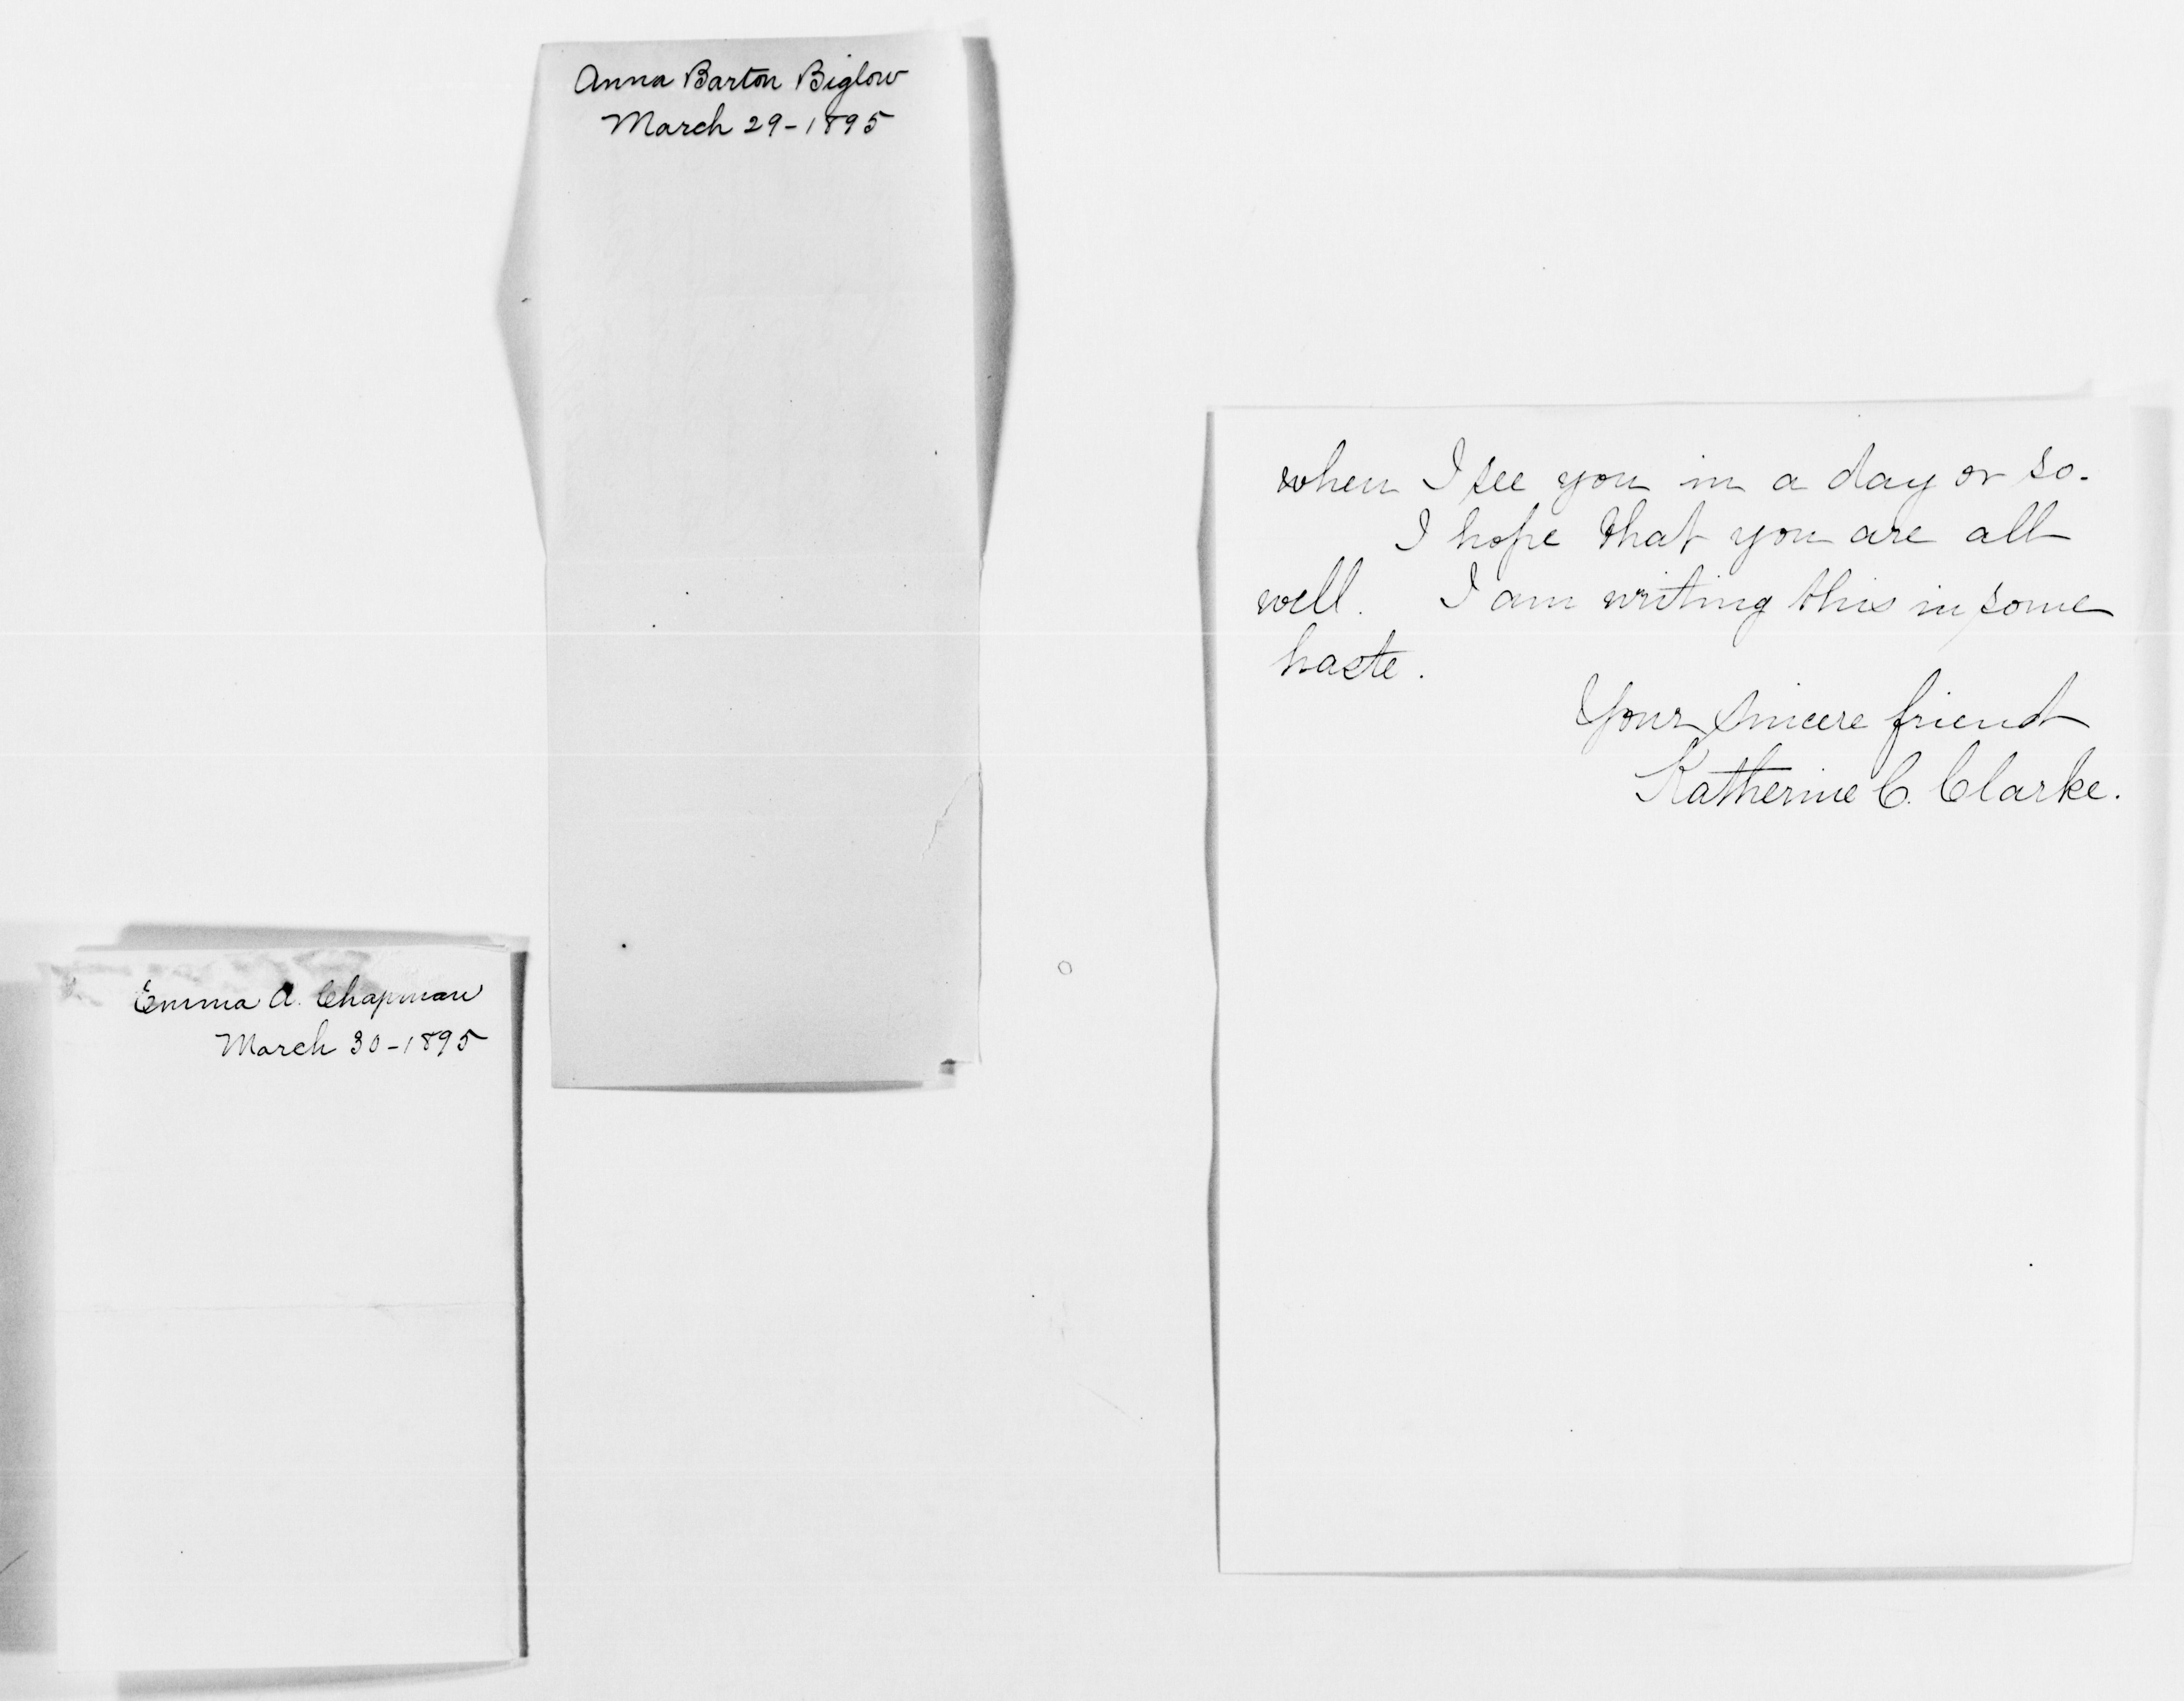 Anna Barton Biglow
March 29-1895
Emma A. Chapman
March 30-1895
when I see you in a day or so.
I hope that you are all
well. I am writing this in some
haste.
Your sincere friend
Katherine C. Clarke.